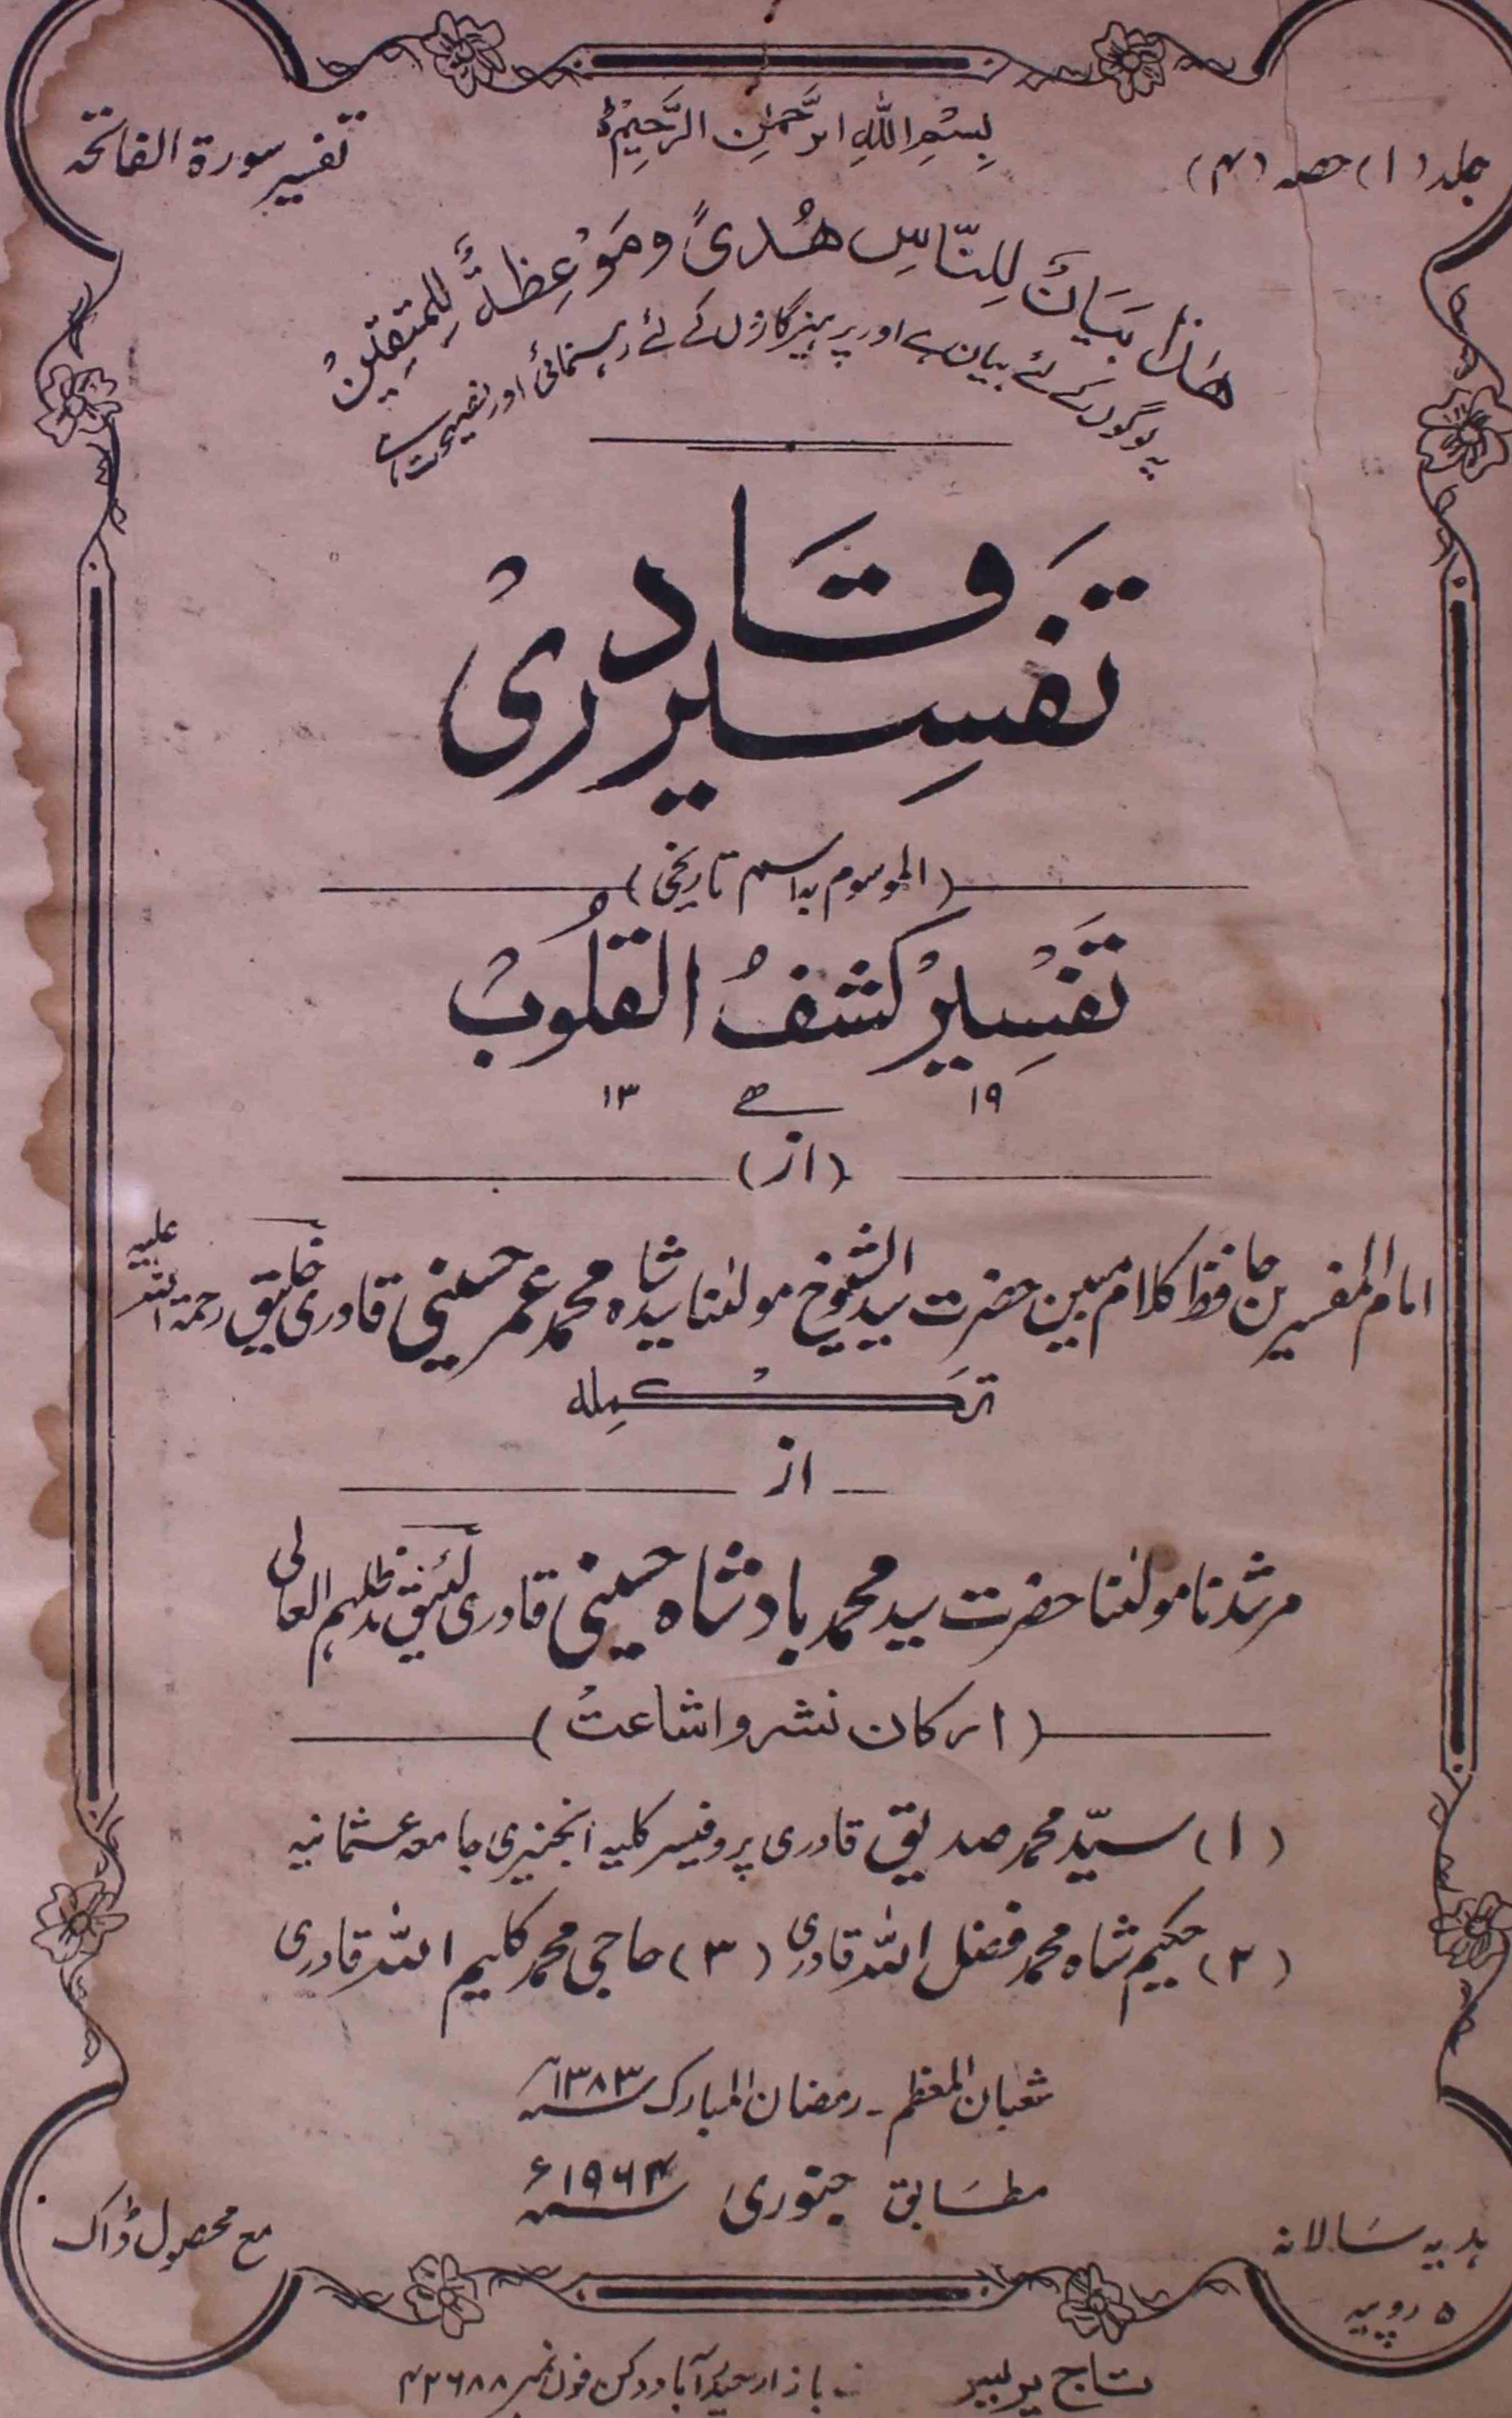 جلد (۱) حصہ (۴)
بِسْمِ اللّٰہِ الرَّحْمٰنِ الرَّحِیْمِ
تفسیر سورۃ الفاتحہ
ھٰذَا بَیَانٌ لِلنَّاسِ ھُدیً وَمَوْعِظَۃٌ لِّلْمُتَّقِیْنَ
یہ لوگوں کے لئے بیان ہے اور پرہیزگاروں کے لئے رہنمائی اور نصیحت ہے
تَفسِیر قَادری
(الموسوم بہ اسم تاریخی)
تَفْسِیْر کَشْفُ القُلُوبْ
۱۹ ھ ۱۳
(از)
امام المفسرین حافظ کلام مبین حضرت سید الشیوخ مولٰنا سید شاہ محمد عمر حسینی قادری خلیق رحمۃ اللہ علیہ
تکمِلہ
از
مرشدنا مولٰنا حضرت سید محمد بادشاہ حسینی قادری لئیق مدظلہم العالی
(ارکان نشر و اشاعت)
(۱) سیّد محمد صدیق قادری پروفیسر کلیہ انجنیری جامعہ عثمانیہ
(۲) حکیم شاہ محمد فضل اللہ قادری (۳) حاجی محمد کلیم اللہ قادری
شعبان المعظم ۔ رمضان المبارک ۱۳۸۳ھ
مطابق جنوری ۱۹۶۴ء
ہدیہ سالانہ
۵ روپیہ
مع محصول ڈاک
تاج پریس بازار حیدرآباد دکن فون نمبر ۴۲۶۸۸